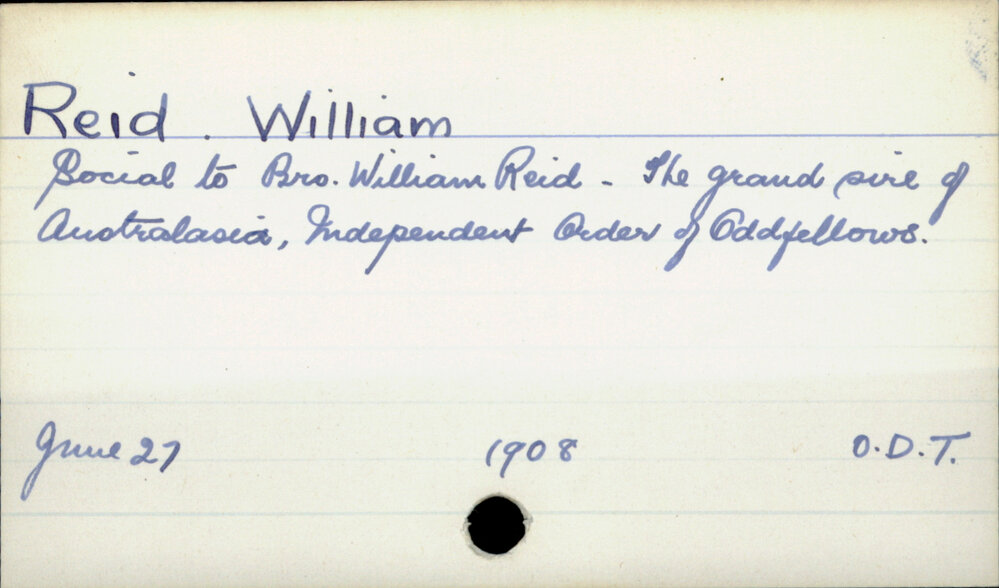 Reid. William
Social to Bro. William Reid - The grand sire of
Australasia, Independent Order of Oddfellows.
June 27 1908 O.D.T.